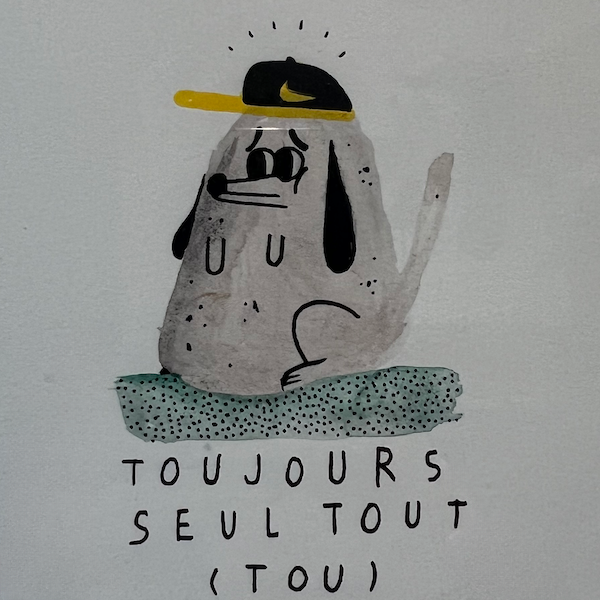 TOUJOURS
SEUL TOUT
(TOU)